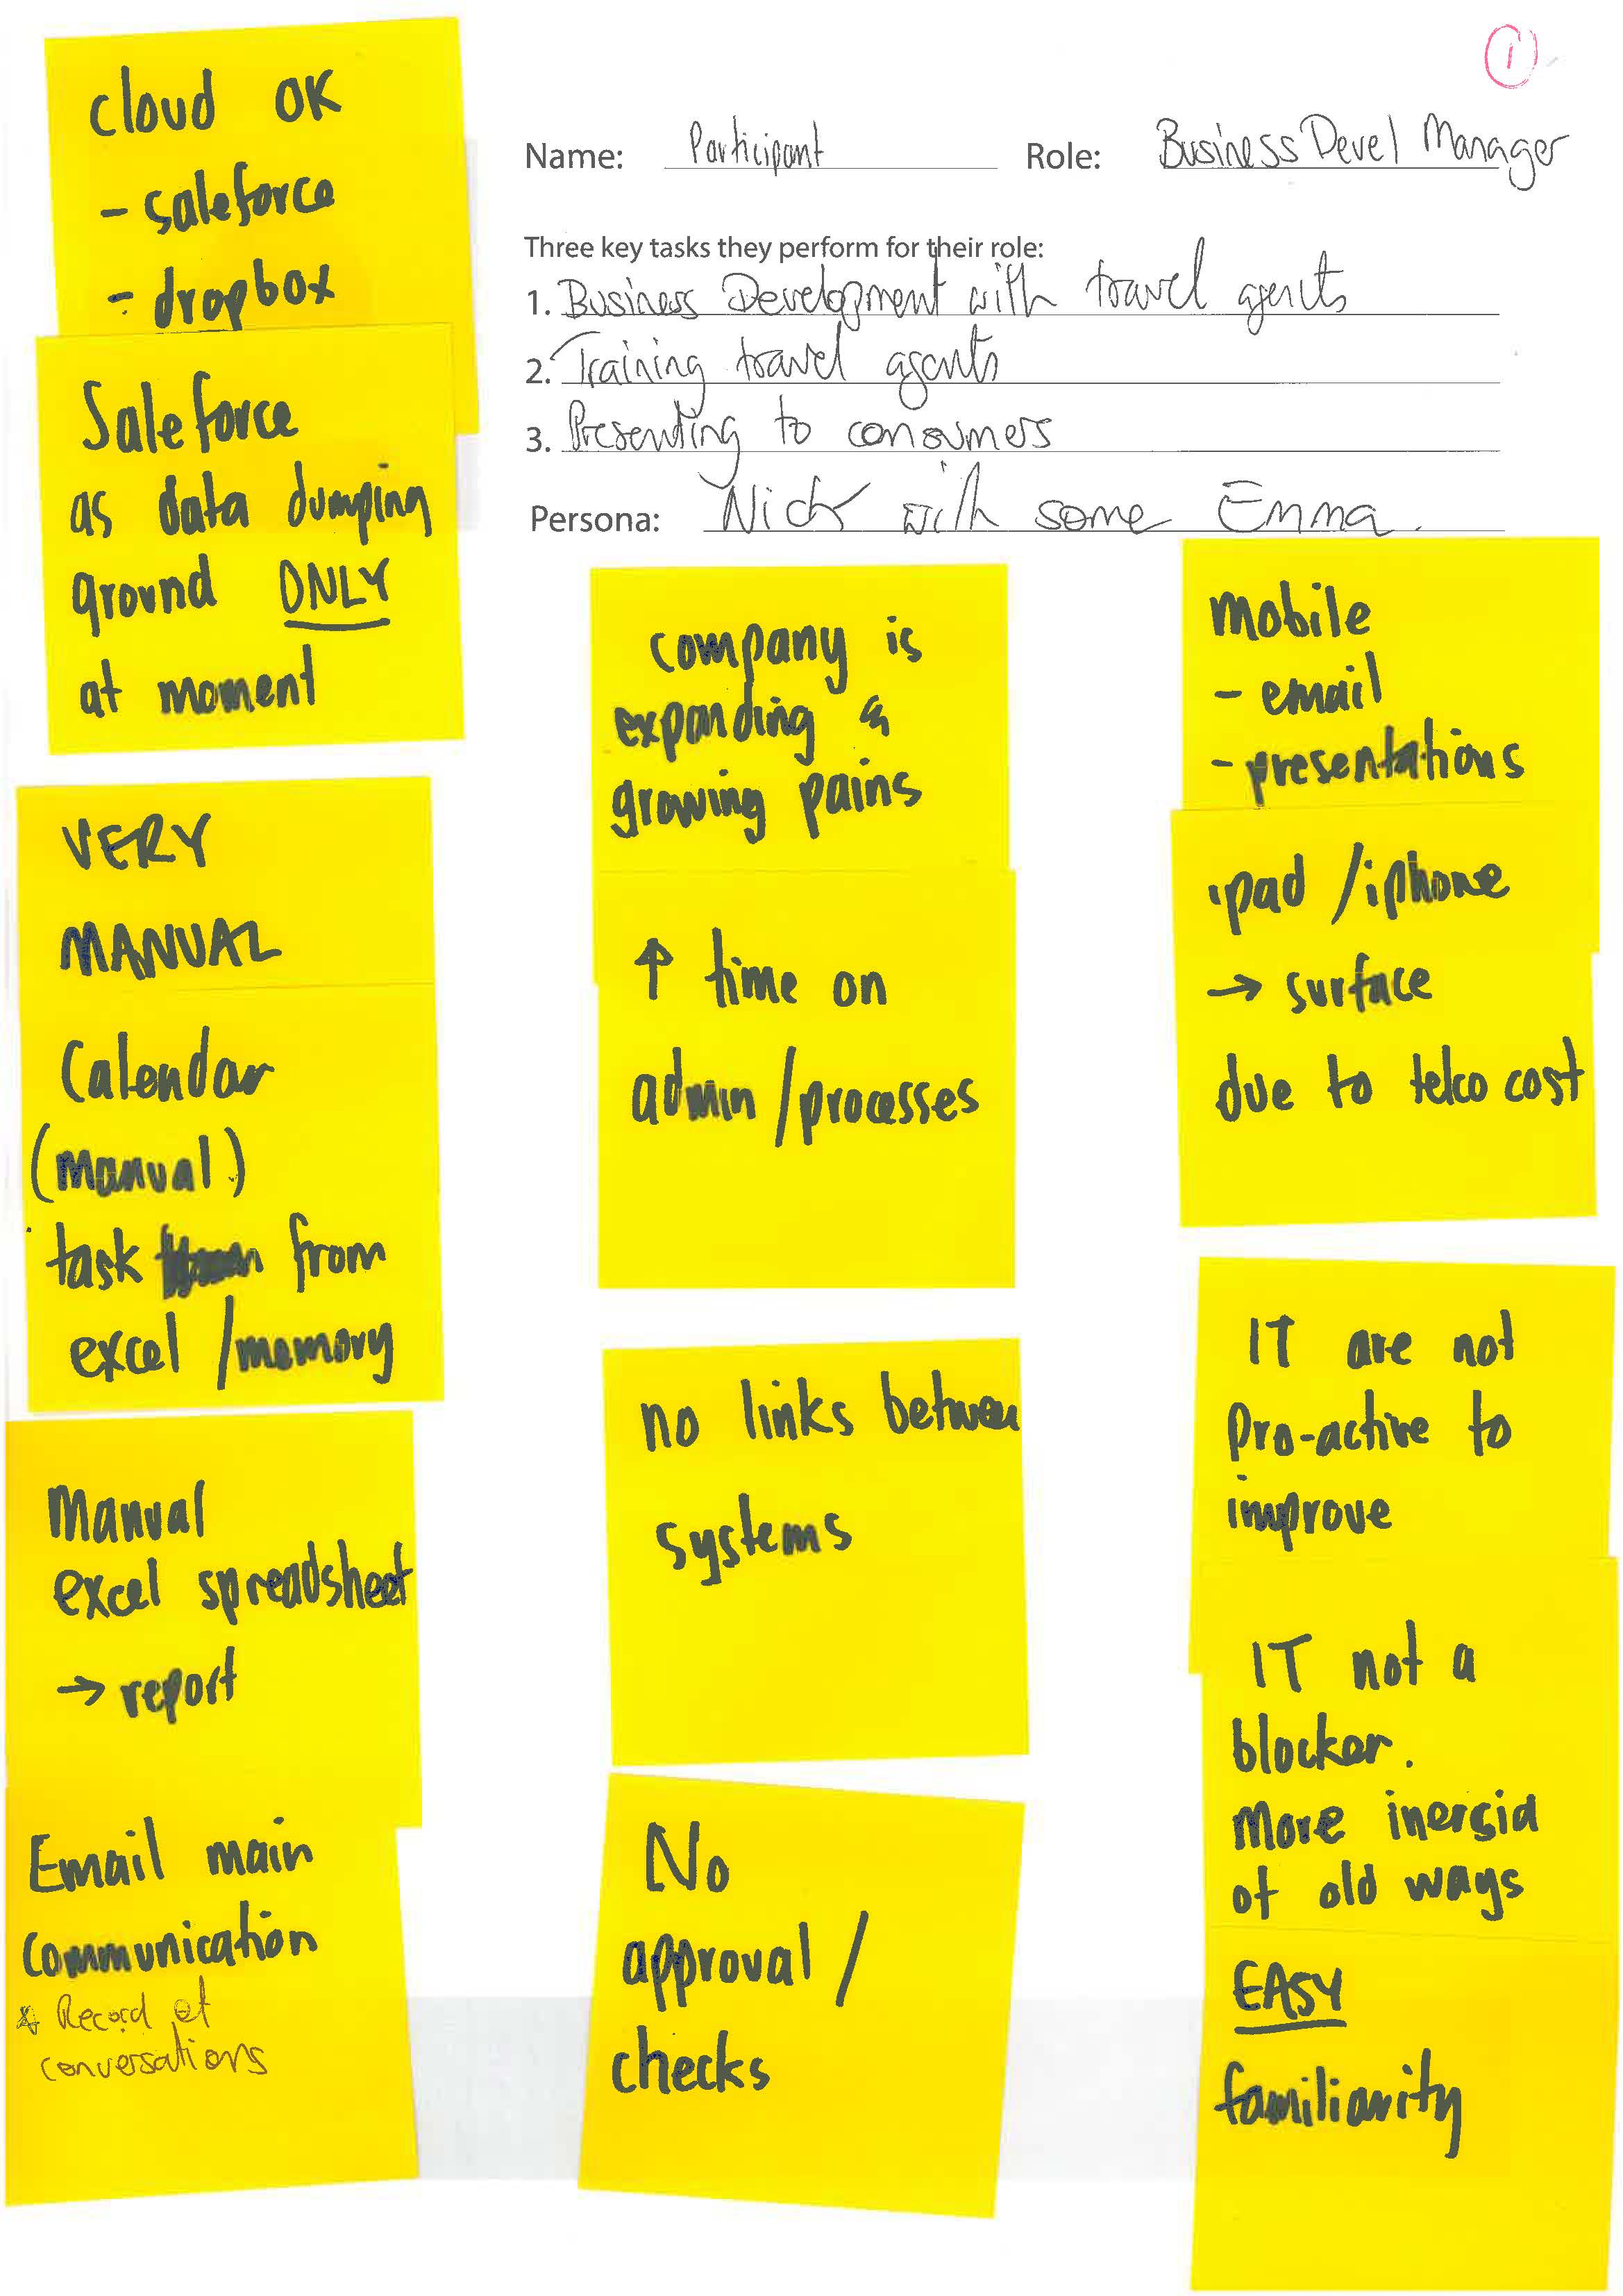 1
Name: Participant Role: Business Devel Manager
Three key tasks they perform for their role:
1. Business Development with travel agents
2. Training travel agents
3. Presenting to consumers
Persona: Nick with some Emma.
cloud OK
- saleforce
- dropbox
Saleforce
as data dumping
ground ONLY
at moment
VERY
MANUAL
Calendar
(manual)
task from
excel /memory
Manual
excel spreadsheet
→ report
Email main
communication
& Record of
conversations
company is
expanding &
growing pains
↑ time on
admin /processes
no links between
systems
No
approval /
checks
mobile
- email
- presentations
ipad /iphone
→ surface
due to telco cost
IT are not
pro-active to
improve
IT not a
blocker.
More inersia
of old ways
EASY
familiarity